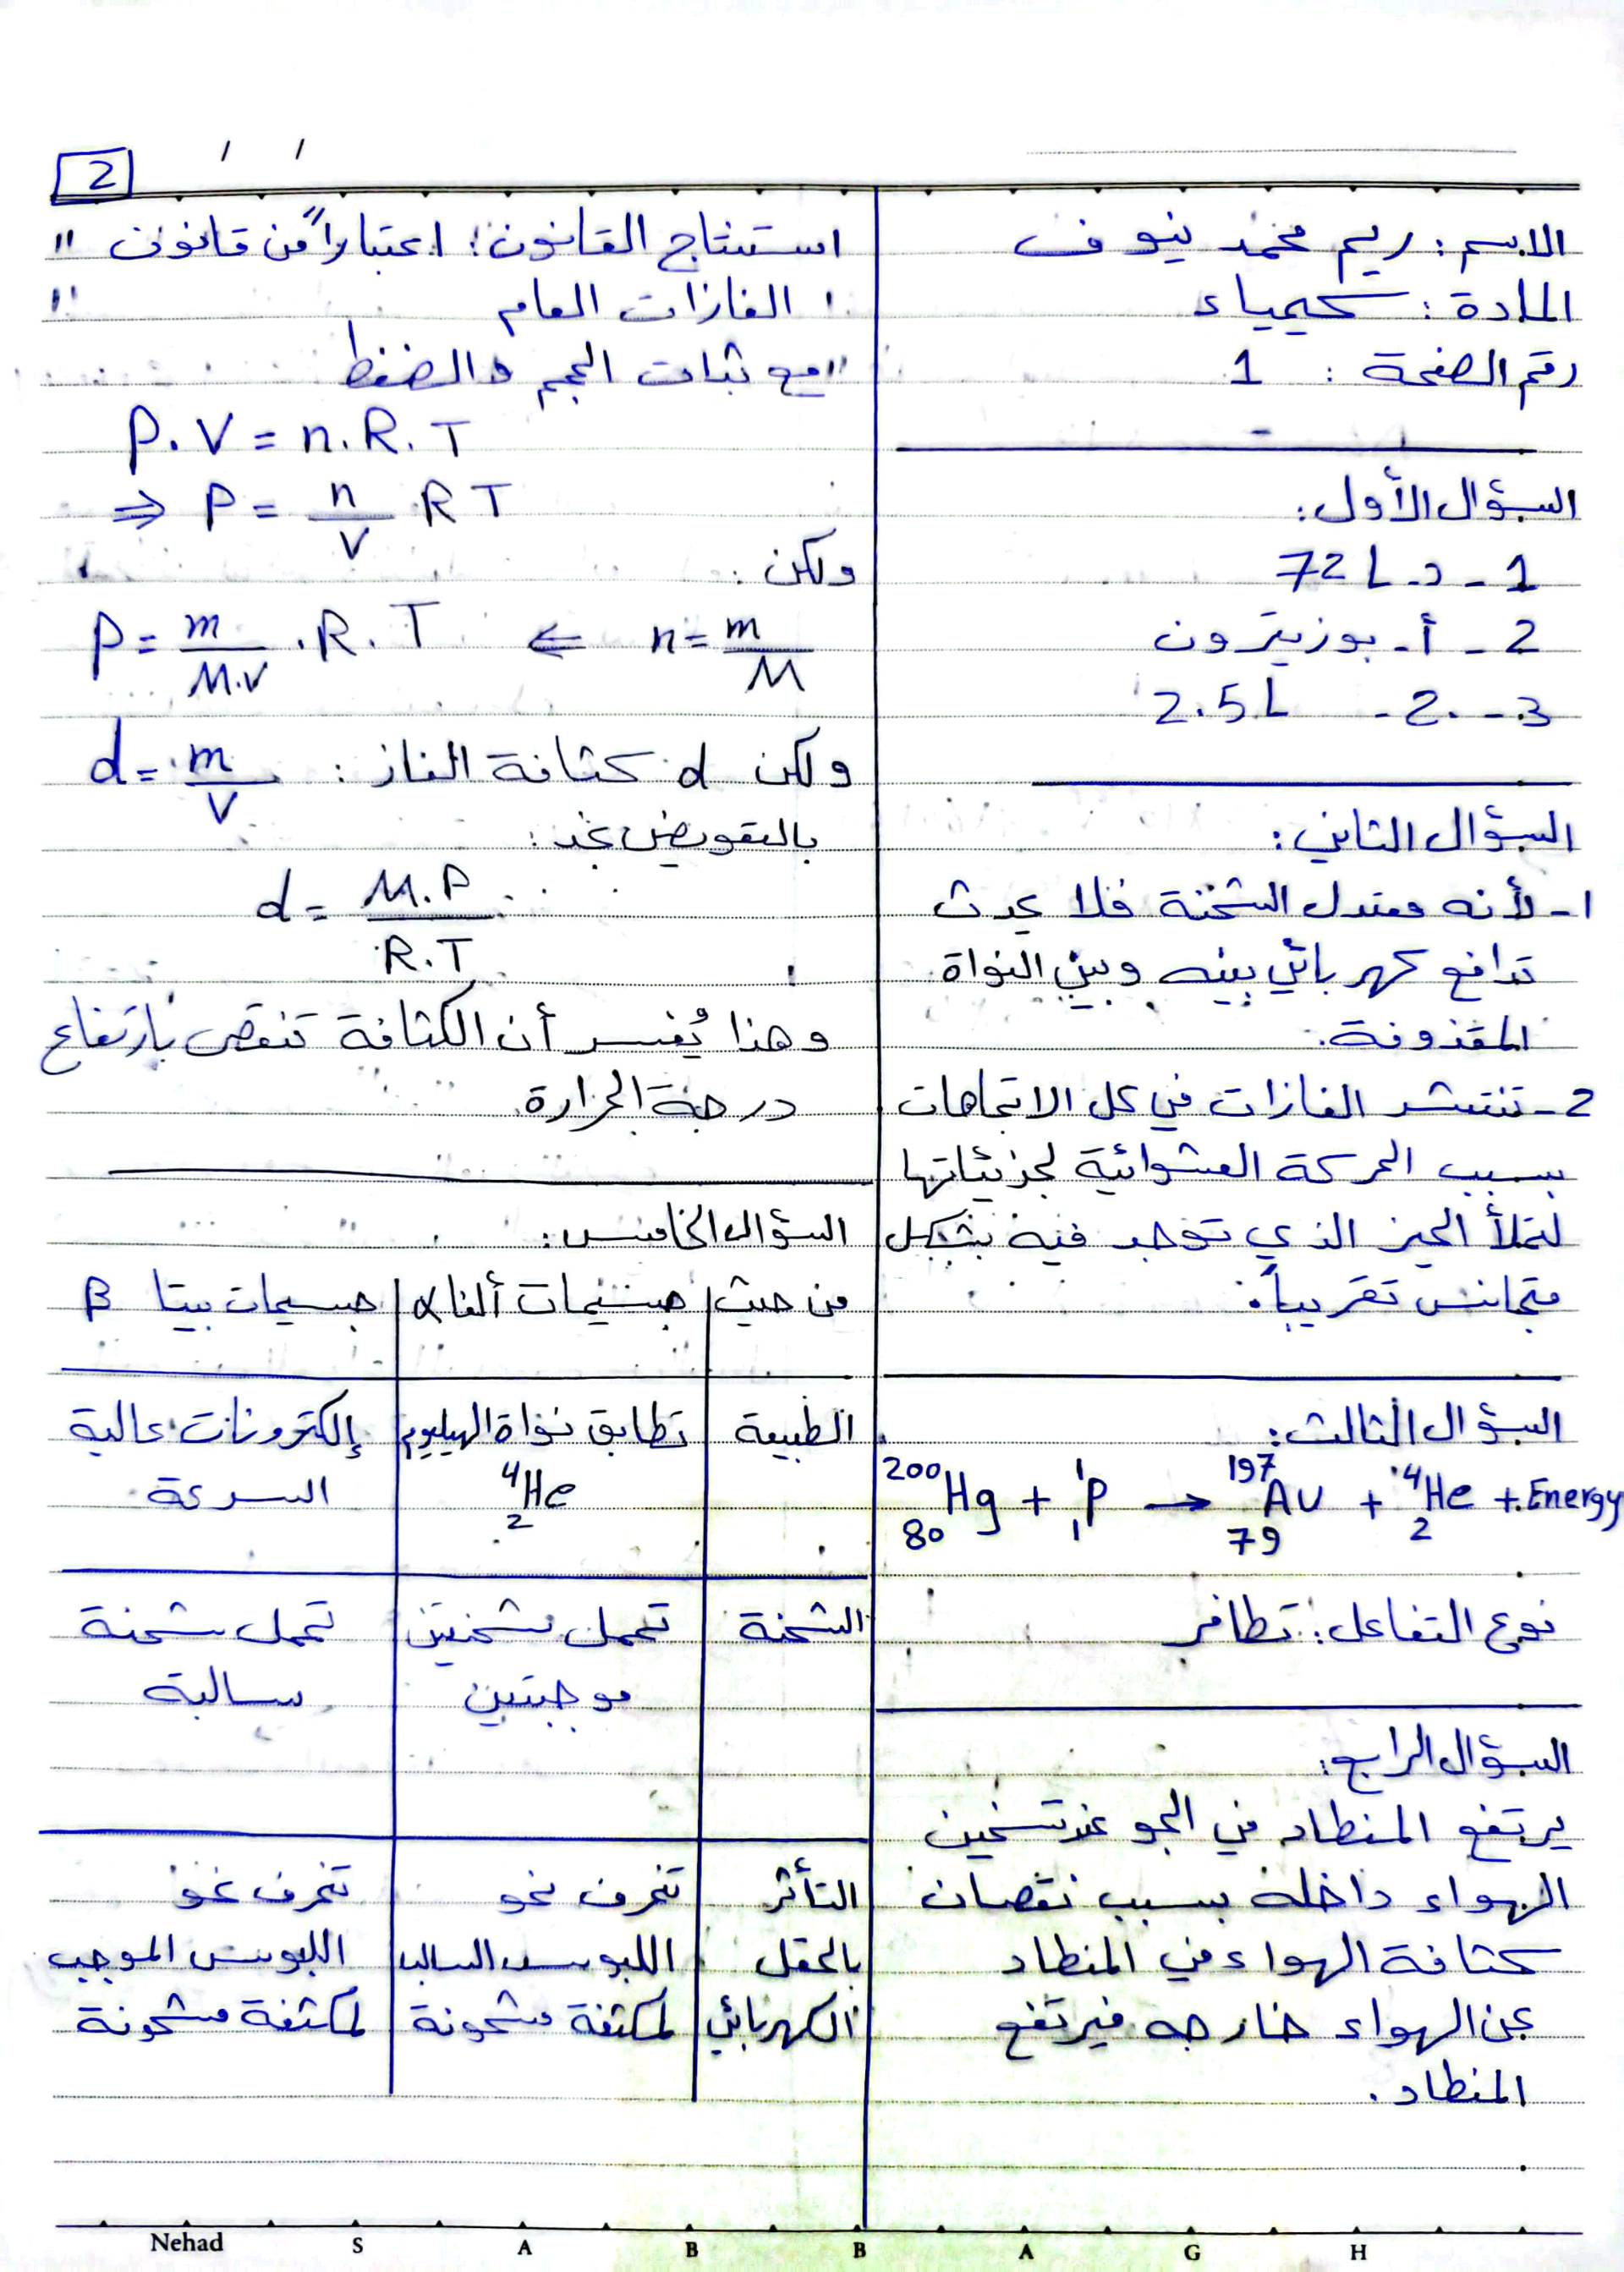 2
الاسم : ريم محمد نيوف
المادة : كيمياء
رقم الصفحة : 1
السؤال الأول:
1 - د - 72 L
2 - أ - بوزيترون
3 - 2 - 2.5 L
السؤال الثاني:
1- لأنه معتدل الشحنة فلا يحدث
تدافع كهربائي بينه وبين النواة
المقذوفة.
2- تنتشر الغازات في كل الاتجاهات
بسبب الحركة العشوائية لجزيئاتها
لتملأ الحيز الذي توجد فيه بشكل
متجانس تقريباً.
السؤال الثالث:
²⁰⁰₈₀Hg + ¹₁P → ¹⁹⁷₇₉Au + ⁴₂He + Energy
نوع التفاعل: تطافر
السؤال الرابع:
يرتفع المنطاد في الجو عند تسخين
الهواء داخله بسبب نقصان
كثافة الهواء في المنطاد
عن الهواء خارجه فيرتفع
المنطاد.
استنتاج القانون: اعتباراً من قانون "
" الغازات العام "
"مع ثبات الحجم والضغط
P. V = n. R. T
⇒ P = n/V R T
ولكن :
n = m/M ⇐ P = m/M.V . R. T
ولكن d كثافة الغاز : d = m/V
بالتعويض نجد :
d = M.P/R.T
وهذا يُفسر أن الكثافة تنقص بارتفاع
درجة الحرارة.
السؤال الخامس:
من حيث | جسيمات ألفا α | جسيمات بيتا β
الطبيعة | تطابق نواة الهيليوم | إلكترونات عالية
⁴₂He | السرعة
الشحنة | تحمل شحنتين | تحمل شحنة
موجبتين | سالبة
التأثر | تنحرف نحو | تنحرف نحو
بالحقل | اللبوس السالب | اللبوس الموجب
الكهربائي | لمكثفة مشحونة | لمكثفة مشحونة
Nehad S A B B A G H